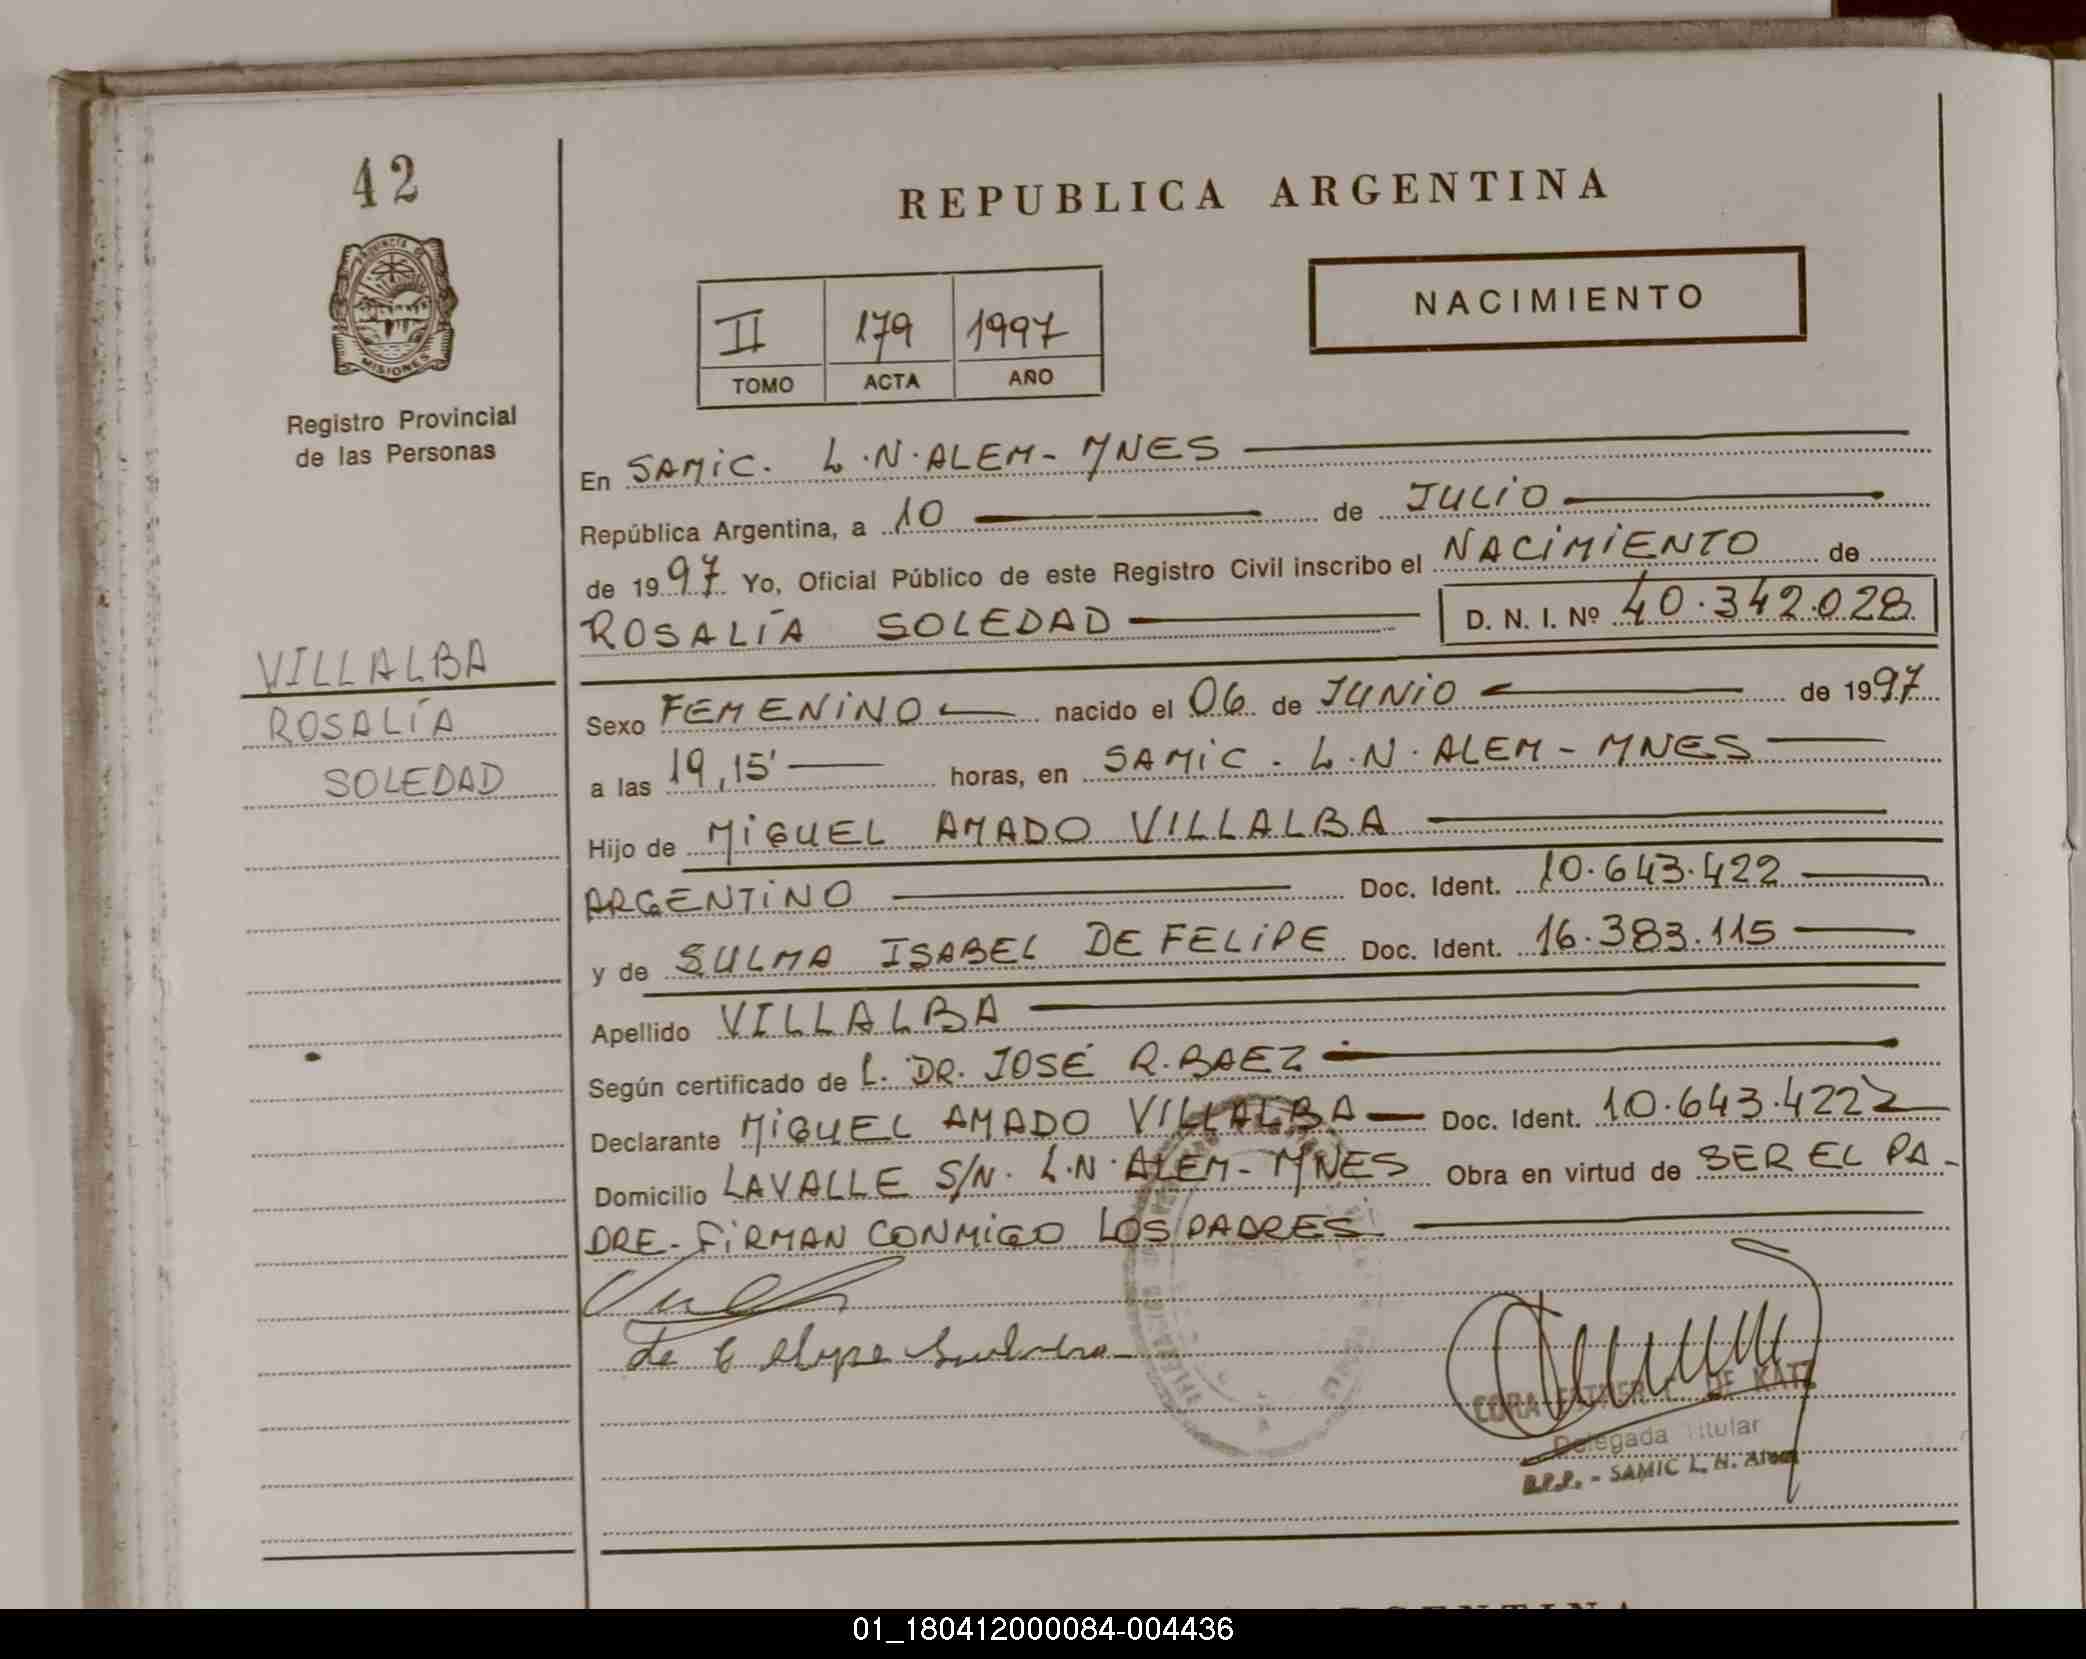 42
REPUBLICA ARGENTINA
PROVINCIA DE
MISIONES
NACIMIENTO
II 179 1997
TOMO ACTA AÑO
Registro Provincial
de las Personas
En SAMIC. L.N.ALEM- MNES
República Argentina, a 10 de JULIO
de 1997 Yo, Oficial Público de este Registro Civil inscribo el NACIMIENTO de
ROSALÍA SOLEDAD D. N. I. Nº 40.342.028
VILLALBA
ROSALÍA
SOLEDAD
Sexo FEMENINO nacido el 06 de JUNIO de 1997
a las 19,15' horas, en SAMIC. L.N.ALEM - MNES
Hijo de MIGUEL AMADO VILLALBA
ARGENTINO Doc. Ident. 10.643.422
y de SULMA ISABEL DE FELIPE Doc. Ident. 16.383.115
Apellido VILLALBA
Según certificado de L. DR. JOSÉ R. BAEZ
Declarante MIGUEL AMADO VILLALBA Doc. Ident. 10.643.422
Domicilio LAVALLE S/N. L.N.ALEM- MNES Obra en virtud de SER EL PA-
DRE- FIRMAN CONMIGO LOS PADRES
CORA ESTHER DE KATZ
Delegada Titular
R.P.P. - SAMIC L. N. Alem
01_180412000084-004436